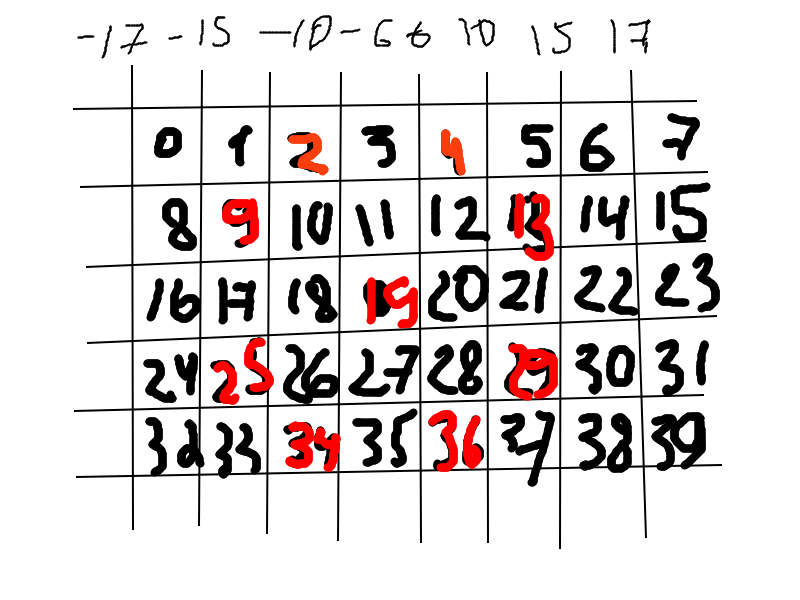 -17 -15 -10 -6 6 10 15 17
0 1 2 3 4 5 6 7
8 9 10 11 12 13 14 15
16 17 18 19 20 21 22 23
24 25 26 27 28 29 30 31
32 33 34 35 36 37 38 39